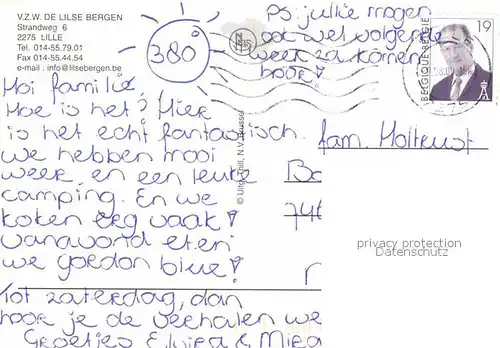 V.Z.W. DE LILSE BERGEN
Strandweg 6
2275 LILLE
Tel. 014-55.79.01
Fax 014-55.44.54
e-mail : info@lilsebergen.be
380
PS jullie mogen
ook wel volgende
week za komen
hoor!
19
BELGIQUE-BELGIË
Hoi familie
Hoe is het? Hier
is het echt fantastisch.
we hebben mooi
weer en een leuke
camping. En we
koken erg vaak!
vanavond eten
we gordon bleue!
Tot zaterdag, dan
hoor je de verhalen we
Groetjes Elvira & Mira
fam. Holtrust
Bo
746
privacy protection
Datenschutz